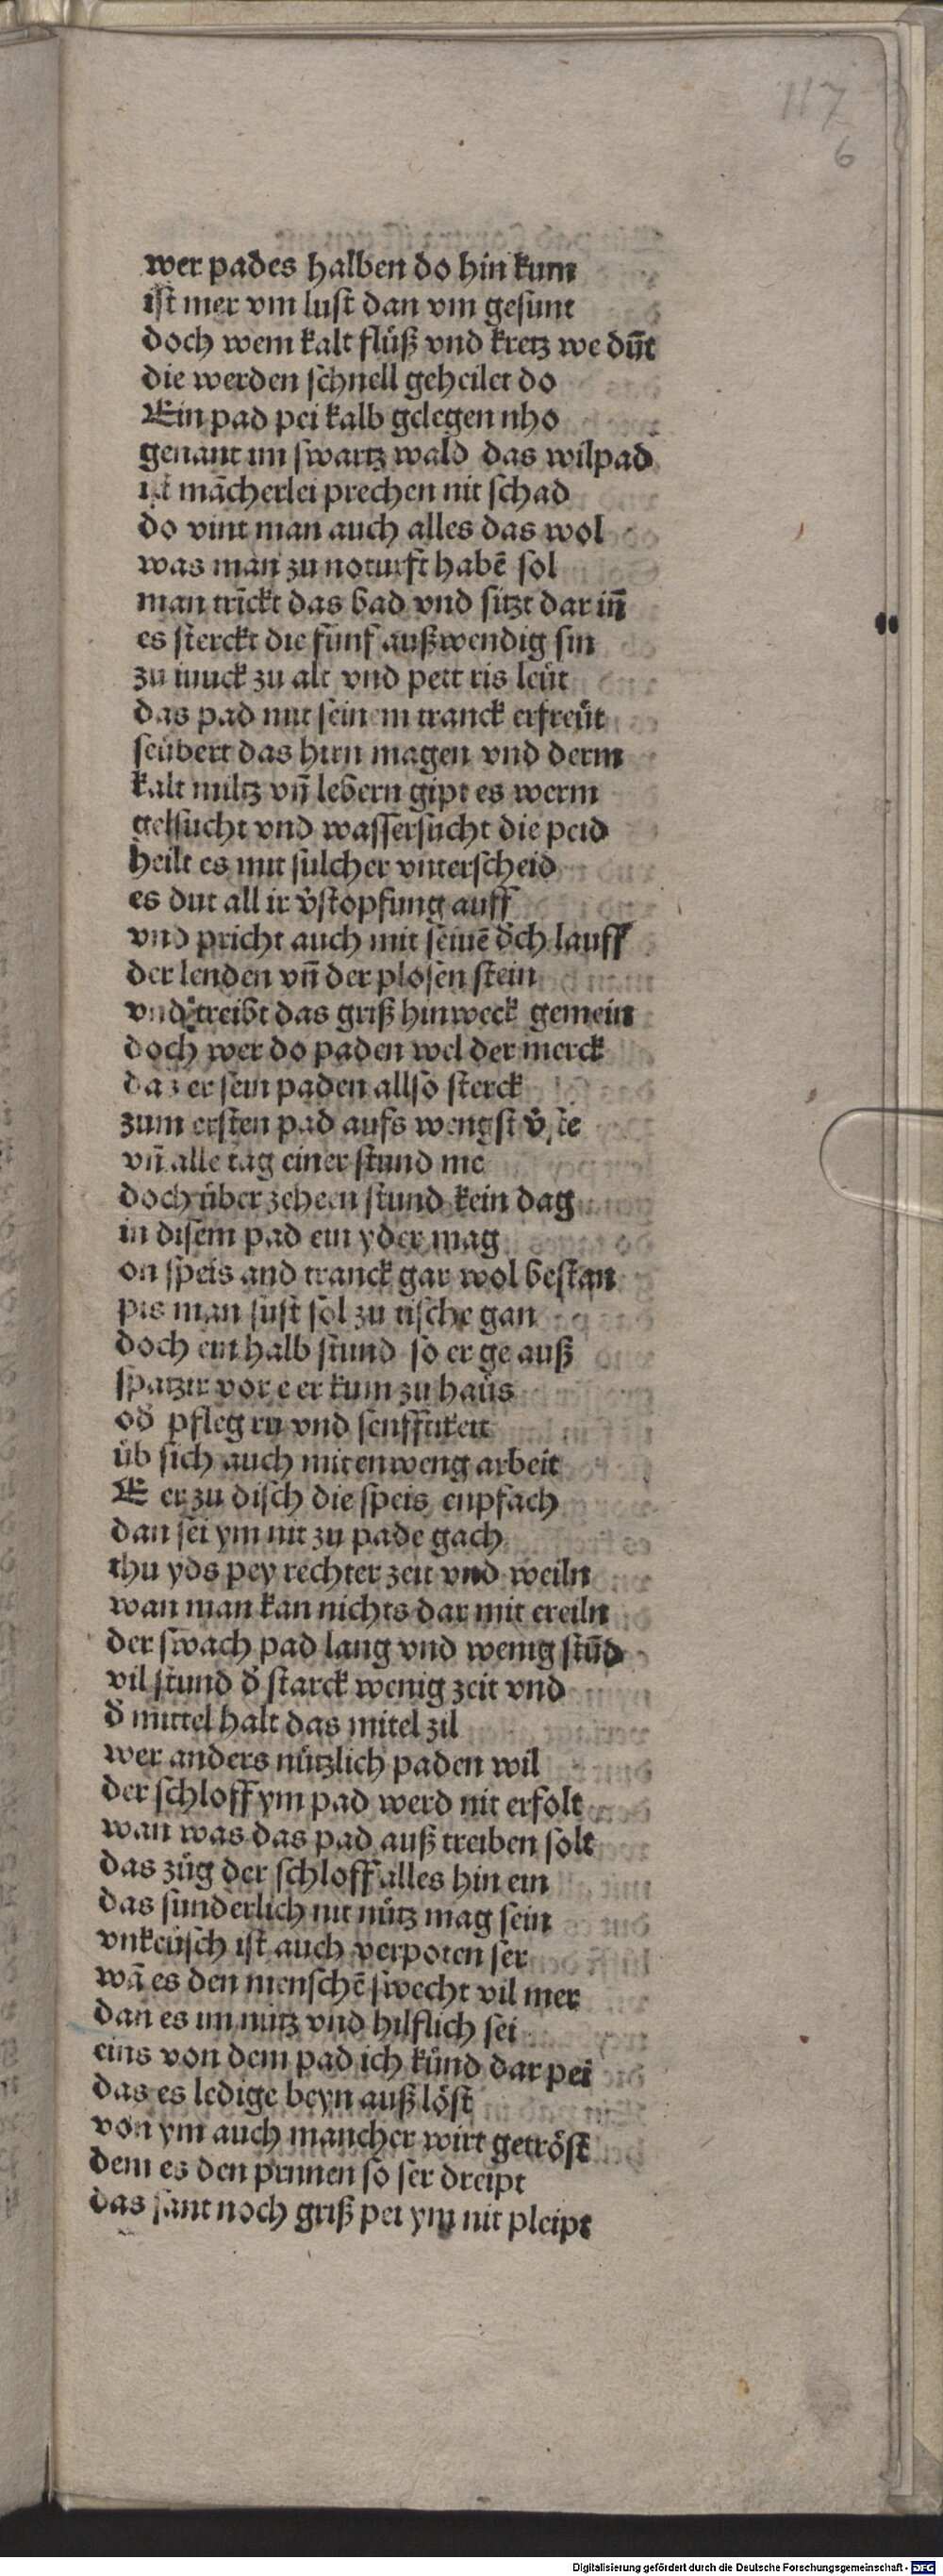 117
6
wer pades halben do hin kum
ist mer vm lust dan vm gesunt
doch wem kalt flúß vnd kretz we dūt
die werden schnell geheilet do
Ein pad pei kalb gelegen nho
genant im swartz wald das wilpad
ist mācherlei prechen nit schad
do vint man auch alles das wol
was man zu noturft habē sol
man trīckt das bad vnd sitzt dar iñ
es sterckt die fünf außwendig sin
zu muck zu alt vnd pett ris leüt
das pad mit seinem tranck erfreüt
seübert das hirn magen vnd derm
kalt miltz vñ lebern gipt es werm
gelsucht vnd wassersucht die peid
heilt es mit sulcher vnterscheid
es dut all ir v̄stopfung auff
vnd pricht auch mit seinē dͤch lauff
der lenden vñ der plosen stein
vnd treibt das griß hinweck gemein
doch wer do paden wel der merck
daz er sein paden allso sterck
zum ersten pad aufs wengst
vñ alle tag einer stund me
doch über zeheen stund kein dag
in disem pad ein yder mag
on speis and tranck gar wol bestan
pis man sust sol zu tische gan
doch ein halb stund so er ge auß
spatzir vor e er kum zu haüs
od pfleg ru vnd senfftikeit
üb sich auch mit enweng arbeit
E er zu disch die speis enpfach
dan sei ym nit zu pade gach
thu yds pey rechter zeit vnd weiln
wan man kan nichts dar mit ereiln
der swach pad lang vnd wenig stūd
vil stund d̄ starck wenig zeit vnd
d̄ mittel halt das mitel zil
wer anders nützlich paden wil
der schloff ym pad werd nit erfolt
wan was das pad auß treiben solt
das züg der schloff alles hin ein
das sunderlich nit nütz mag sein
vnkeüsch ist auch verpoten ser
wā es den menschē swecht vil mer
dan es im nütz vnd hilflich sei
eins von dem pad ich künd dar pei
das es ledige beyn auß löst
von ym auch mancher wirt getröst
dem es den prunen so ser dreipt
das sant noch griß pei ym nit pleipt
Digitalisierung gefördert durch die Deutsche Forschungsgemeinschaft - DFG